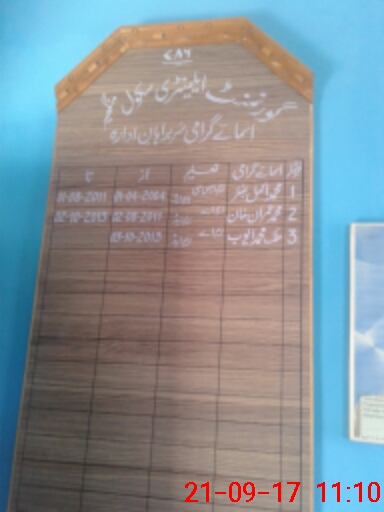 ۷۸۶
گورنمنٹ ایلیمنٹری سکول
اسمائے گرامی سربراہان ادارہ
نمبر اسمائے گرامی تعلیم از تا
1 محمد اجمل 01-04-2004 01-08-2011
2 محمد عمران خان 02-08-2011 02-10-2013
3 ملک محمد ایوب 03-10-2013
21-09-17 11:10